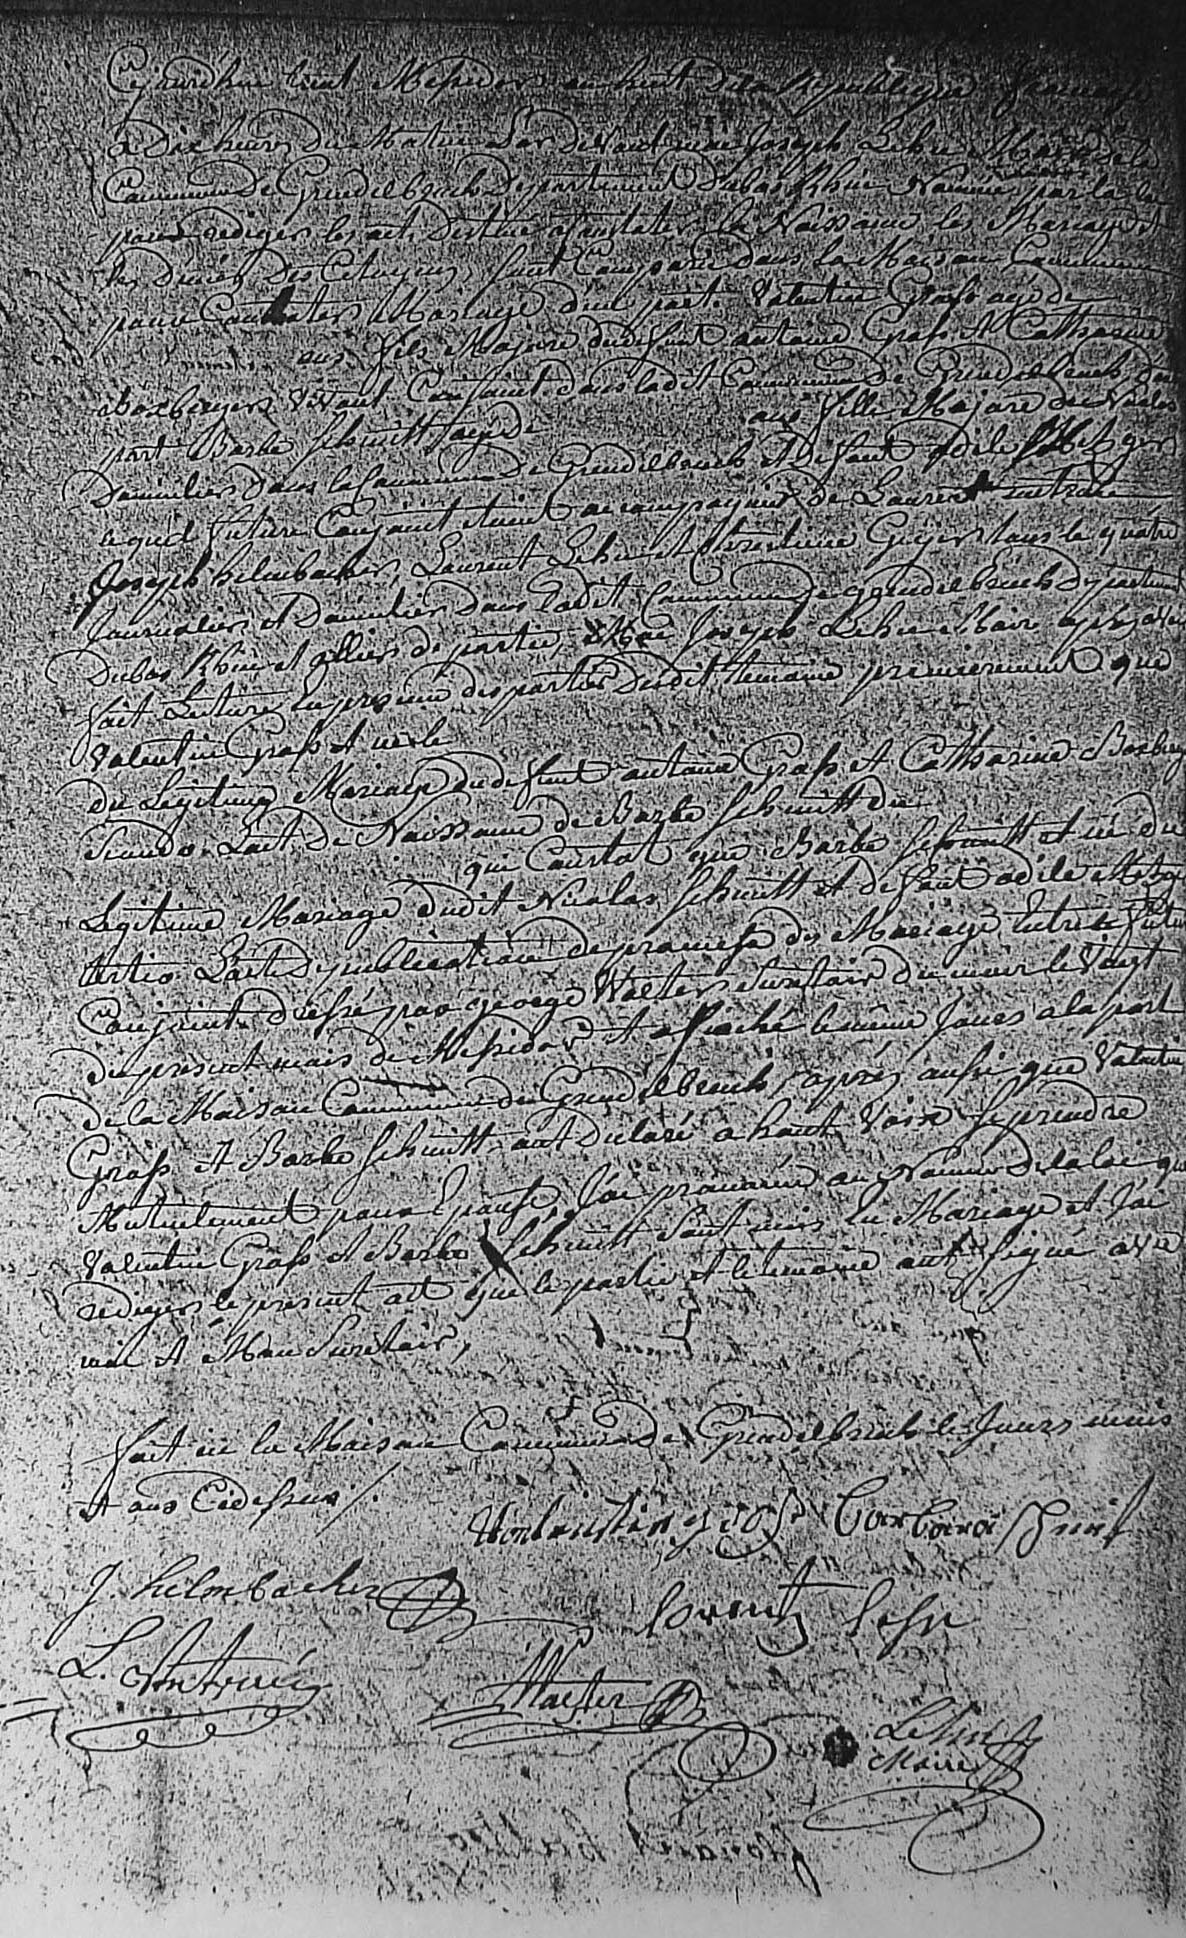 Cejourd'hui trent Messidor an huit de la Republique francaise
a Dix heures du Matin Par devant moi Joseph Lehn Maire de la
Commune De Grendelbruch Departement Dubas Rhin Nommé par la loi
pour rediger les act Destiné a Constater la Naissance les Mariage et
les Décés Des Citoyens, sont Comparu Dans la Maison Commune
pour Contrater Mariage d'un part Valentin Grass agé de
ans fils Majore du defunt antoine Grass et Catharine
Boxberger vivant Conjoint dans ladit Commune De Grendelbruch
part Barbe Schmitt agé de ans fille Majore de Nicolas
Domicilier Dans la Commune De Grendelbruch et Defunt odile Metzger
lequel future Conjoint etoient accompagnier de Laurent
Joseph hilmbacher, Laurent Lehn et tous le quatre
Journalier et Domicilier Dans ladit Commune De grendelbruch Departement
Dubas Rhin et de partie, Moi Joseph Lehn Maire aprés avoir
fait Lecture en presence des partie Dudit temoine premierement que
Valentin Grass et née le
du Légitime Mariage du defunt antoine Grass et Catharine Boxberger
Secundo. L'act De Naissance de Barbe Schmitt du
qui Constat que Barbe Schmitt et née du
Legitime Mariage dudit Nicolas Schmitt et defunt odile Metzger
tertio. L'act De publication de promesse de Mariage Entre le futur
Conjoint dressé par george Walter Secretair du maire le Vingt
du present mois de Messidor et affiché le même Jours a la port
de la Maison Commune de Grendelbruch, aprés aussi que Valentin
Grass et Barbe Schmitt ont Declaré a haut Voix se prendre
Mutuelement pour Epouse, J'ai prononcée au Nom De la loi que
Valentin Grass et Barbe Schmitt sont unis en Mariage et J'ai
rediger le present act que le partie et le temoine ont signé avec
moi et Mon Secretair,
fait en la Maison Commune De Grendelbruch le Jours mois
et ans Cidessus /.
Barbara Schmit
J. hilmbacher
lorentz lehn
L.
Walter
Lehn
Maire